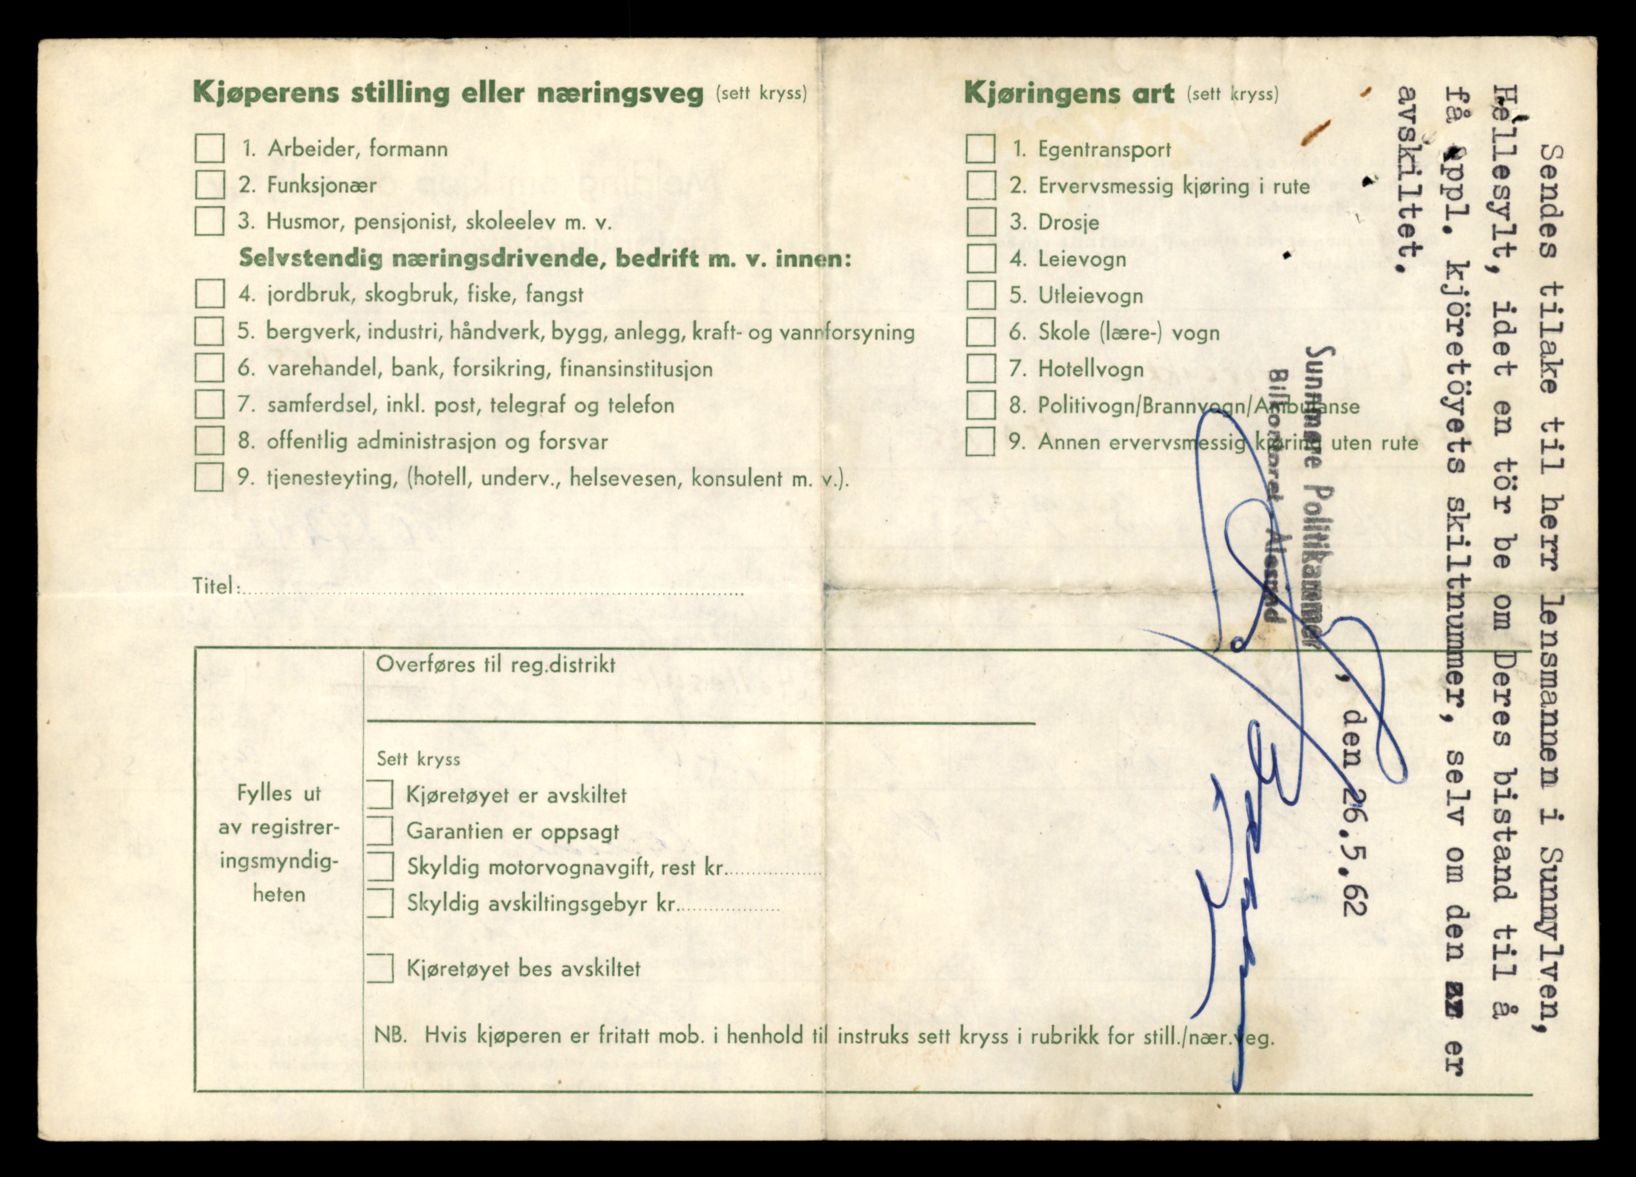 Kjøperens stilling eller næringsveg (sett kryss)
1. Arbeider, formann
2. Funksjonær
3. Husmor, pensjonist, skoleelev m. v.
Selvstendig næringsdrivende, bedrift m. v. innen:
4. jordbruk, skogbruk, fiske, fangst
5. bergverk, industri, håndverk, bygg, anlegg, kraft- og vannforsyning
6. varehandel, bank, forsikring, finansinstitusjon
7. samferdsel, inkl. post, telegraf og telefon
8. offentlig administrasjon og forsvar
9. tjenesteyting, (hotell, underv., helsevesen, konsulent m. v.).
Titel:
Kjøringens art (sett kryss)
1. Egentransport
2. Ervervsmessig kjøring i rute
3. Drosje
4. Leievogn
5. Utleievogn
6. Skole (lære-) vogn
7. Hotellvogn
8. Politivogn/Brannvogn/Ambulanse
9. Annen ervervsmessig kjøring uten rute
Fylles ut
av registrer-
ingsmyndig-
heten
Overføres til reg.distrikt
Sett kryss
Kjøretøyet er avskiltet
Garantien er oppsagt
Skyldig motorvognavgift, rest kr.
Skyldig avskiltingsgebyr kr.
Kjøretøyet bes avskiltet
NB. Hvis kjøperen er fritatt mob. i henhold til instruks sett kryss i rubrikk for still./nær.veg.
Sendes tilake til herr lensmannen i Sunnylven,
Hellesylt, idet en tör be om Deres bistand til å
få oppl. kjöretöyets skiltnummer, selv om den er
avskiltet.
, den 26.5.62
Sunnmøre Politikammer
Bilkontoret - Ålesund